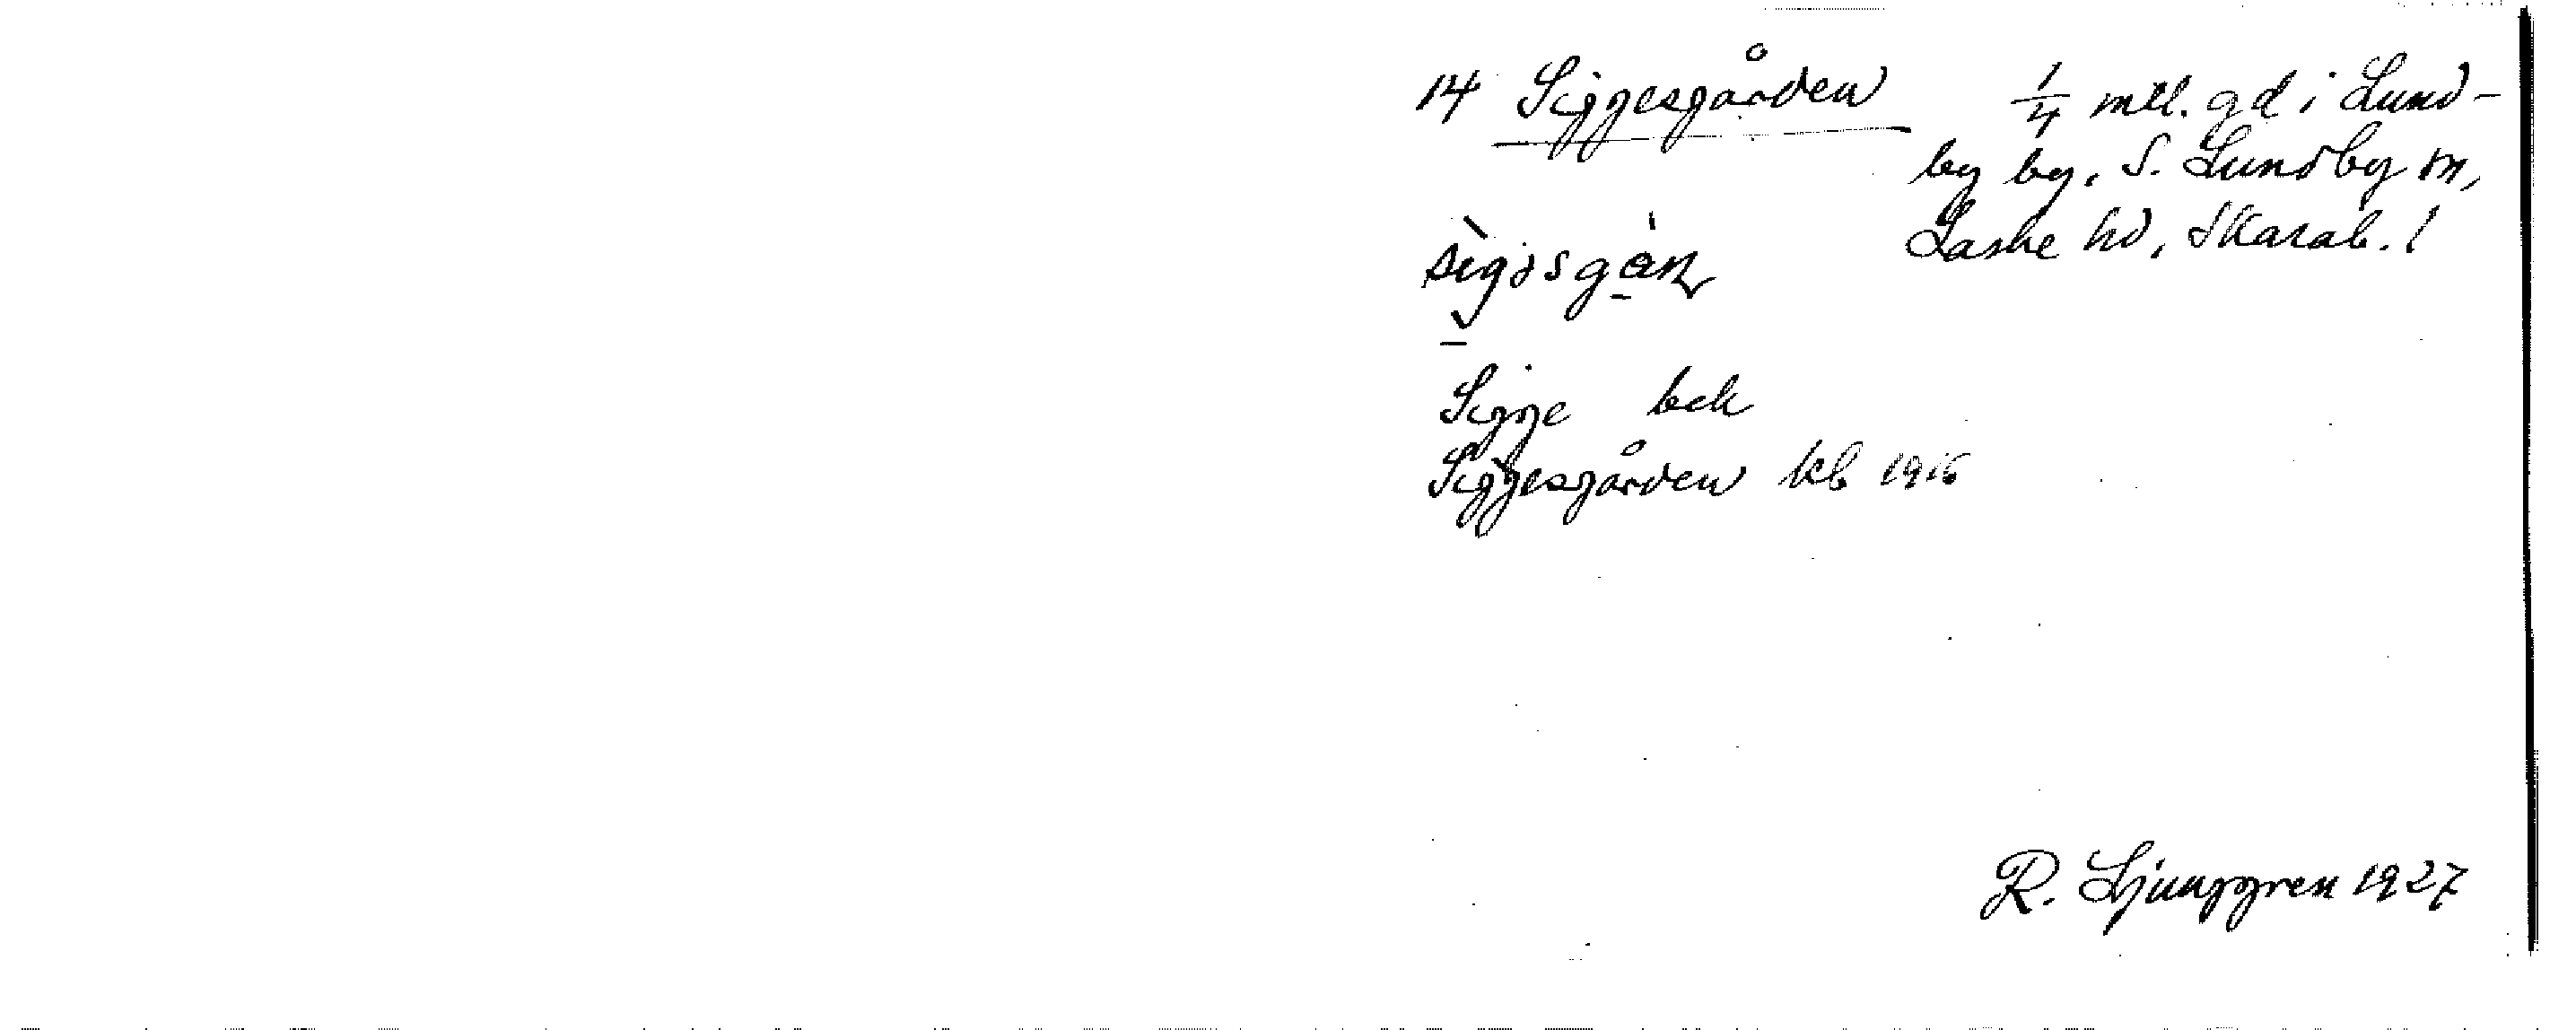 14 Siggesgården 1/4 mtl. gd i Lund-
by by, S. Lundby sn,
Laske hd, Skarab. l
Sigge bek
Siggesgården kb 1916
R. Ljunggren 1927